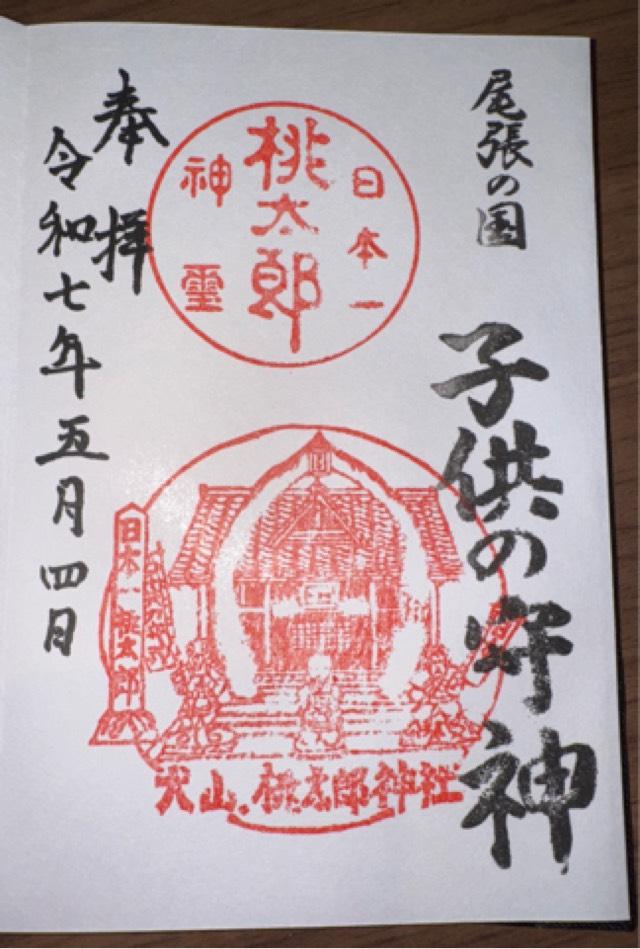 尾張の国
子供の守神
日本一
桃太郎
神霊
日本一桃太郎
犬山.桃太郎神社
奉拝
令和七年五月四日